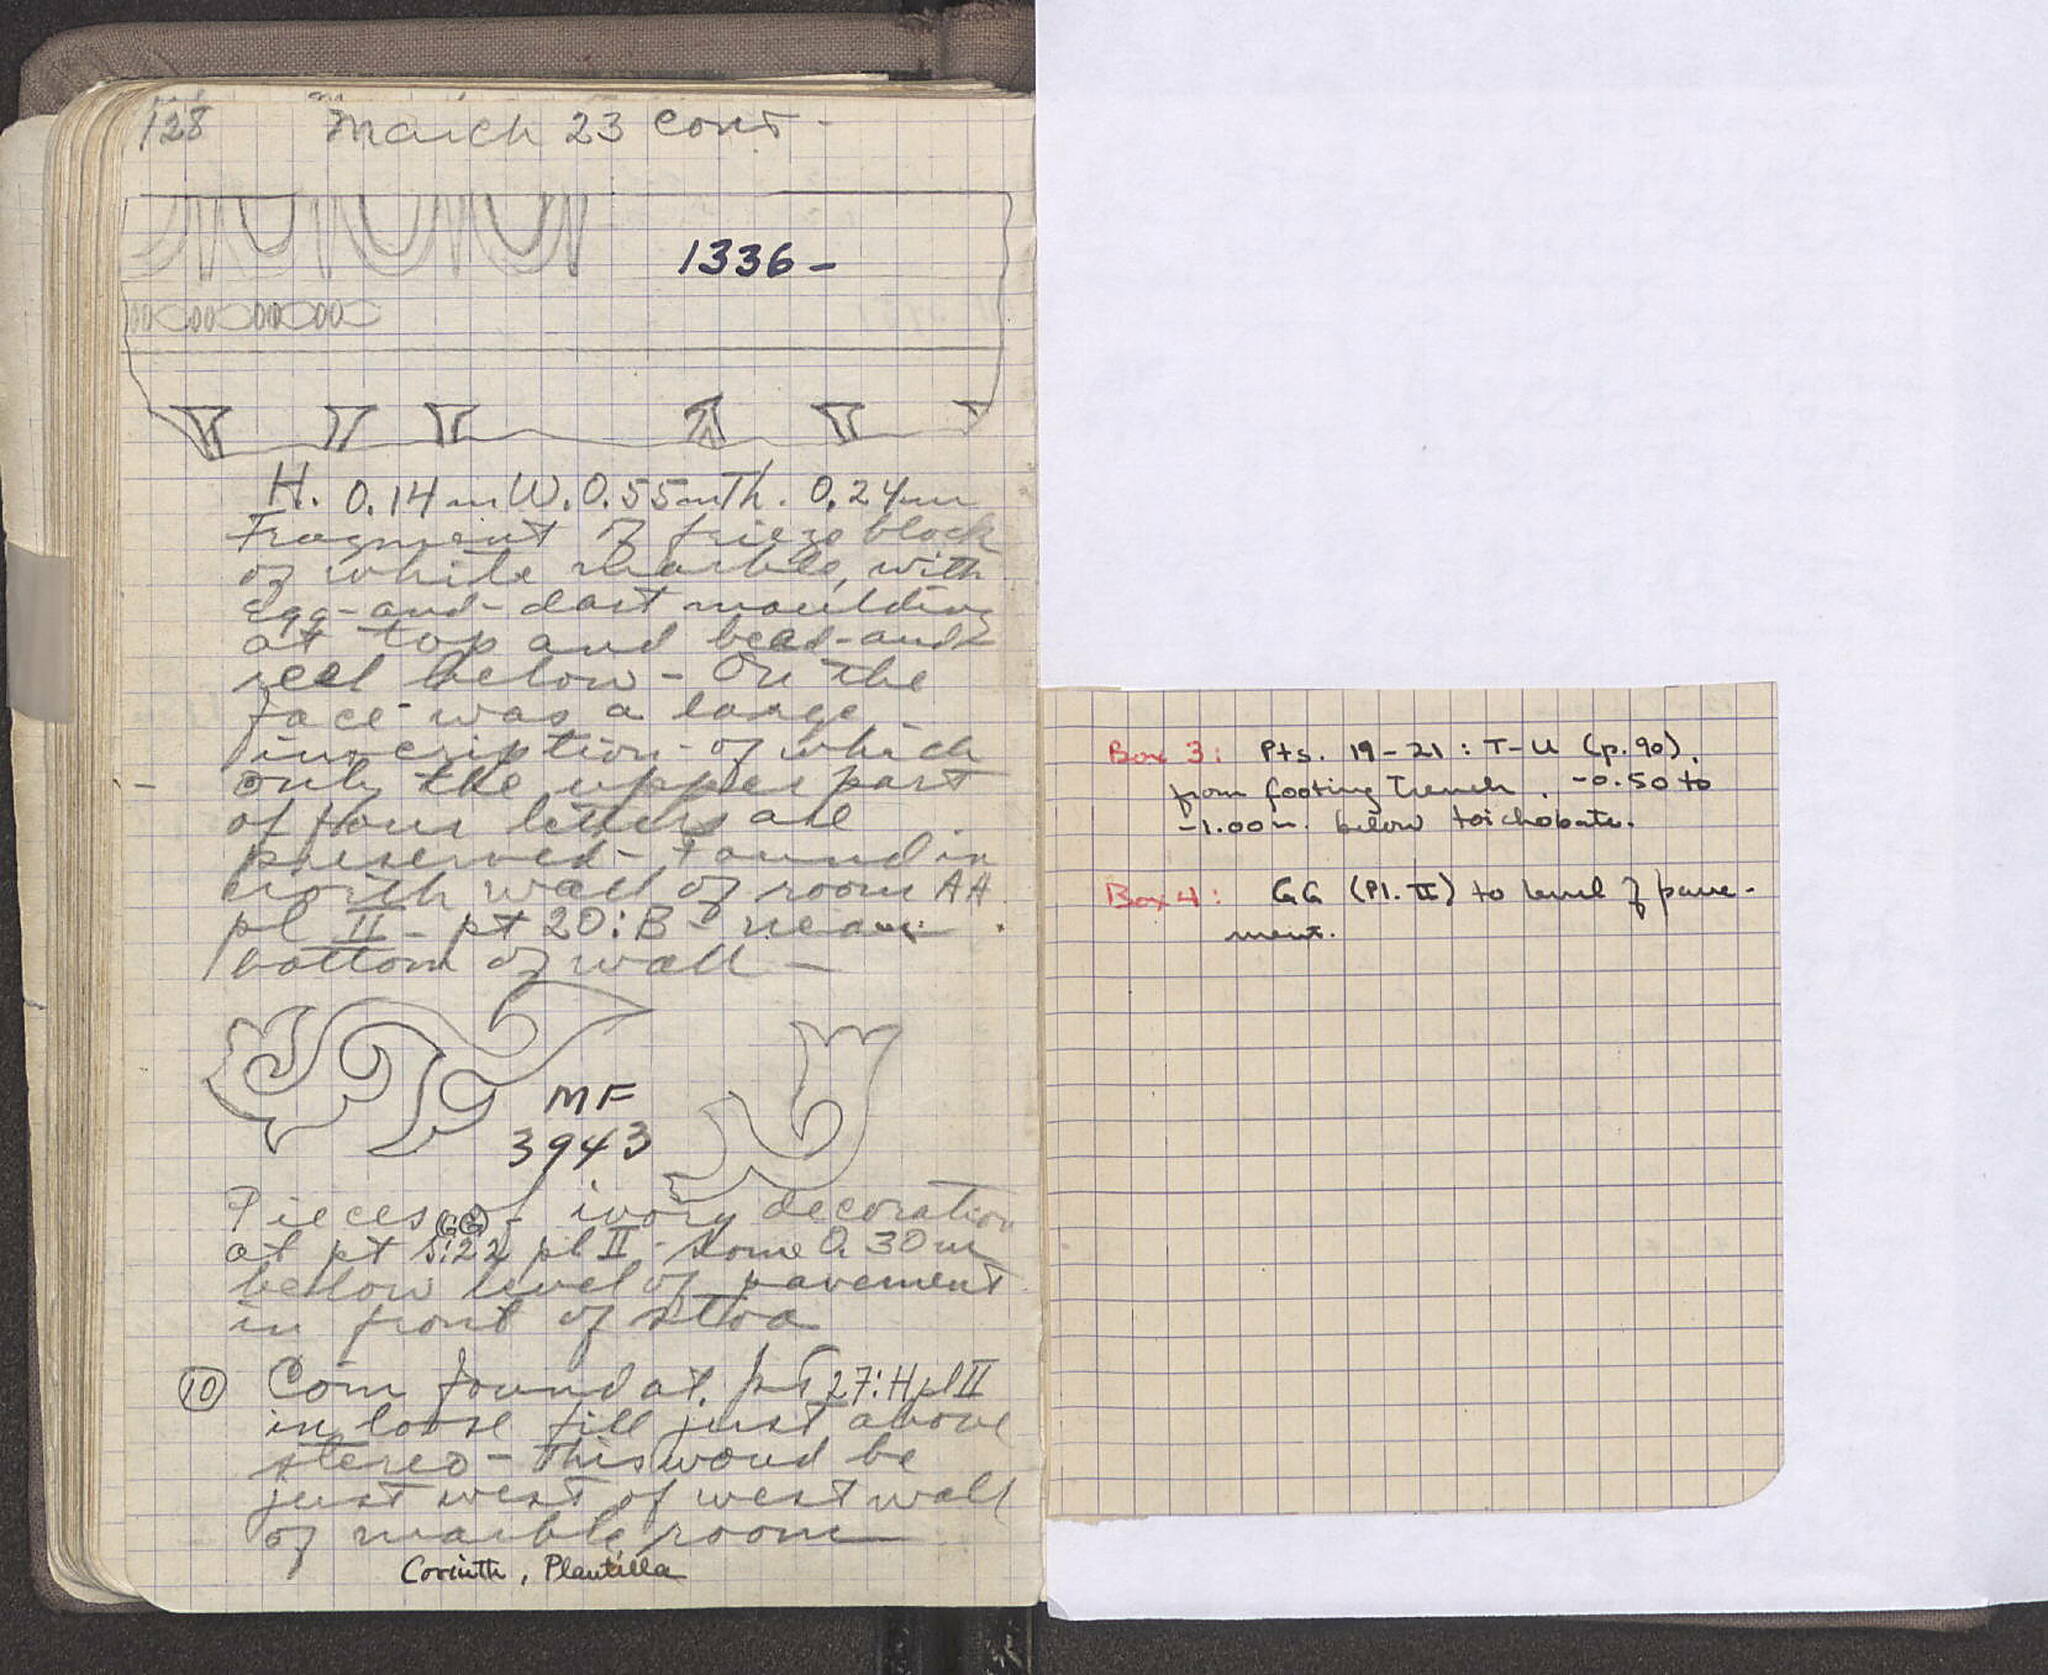 128 March 23 cont-
1336-
H. 0.14 m W. 0.55 m Th. 0.24 m
Fragment of frieze block
of white marble, with
egg-and-dart moulding
at top and bead-and-
reel below - On the
face was a large
inscription - of which
only the upper part
of four letters are
preserved - Found in
north wall of room AA
pl II - pt 20:B - near
bottom of wall -
MF
3943
Pieces of ivory decoration
GG
at pt S:22 pl II - some 0.30 m
below level of pavement
in front of stoa
10 Coin found at pt 27:H pl II
in loose fill just above
stereo - this woud be
just west of west wall
of marble room
Corinth, Plautilla
Box 3: Pts. 19-21: T-U (p. 90).
from footing trench. -0.50 to
-1.00 m. below toichobate.
Box 4: GG (Pl. II) to level of pave-
ment.